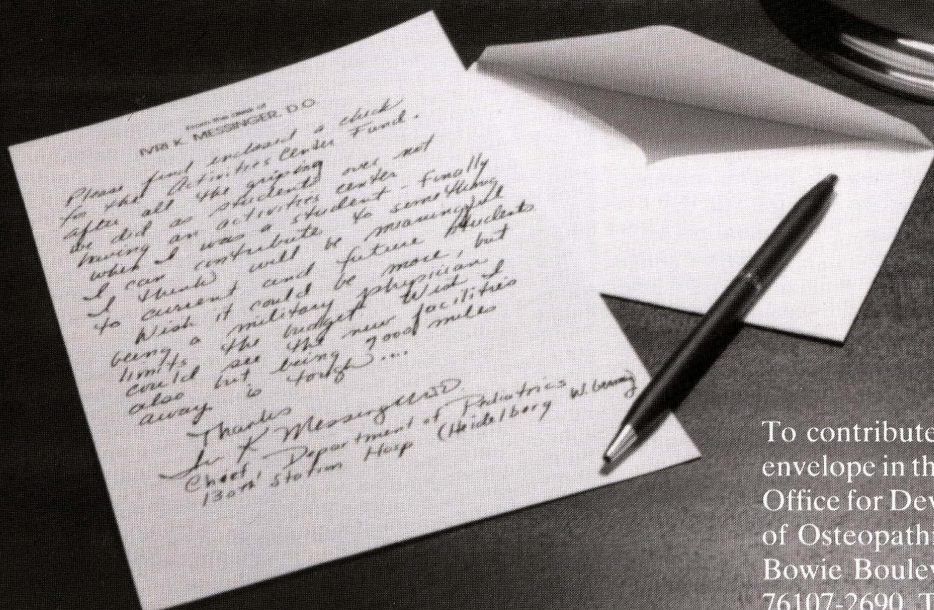 From the desk of
IVRI K. MESSINGER, D.O.
Please find enclosed a check
for the Activities Center Fund.
After all the griping
we did as students over not
having an activities center
when I was a student - Finally
I can contribute to something
I think will be meaningful
to current and future students
Wish it could be more, but
being a military physician
limits the budget. Wish I
could see the new facilities
also but being 9000 miles
away is tough...
Thanks
K Messinger D.O.
Chief, Department of Pediatrics
130th Station Hosp (Heidelberg W.
To contribute
envelope in th
Office for Dev
of Osteopathi
Bowie Boulev
76107-2690. T